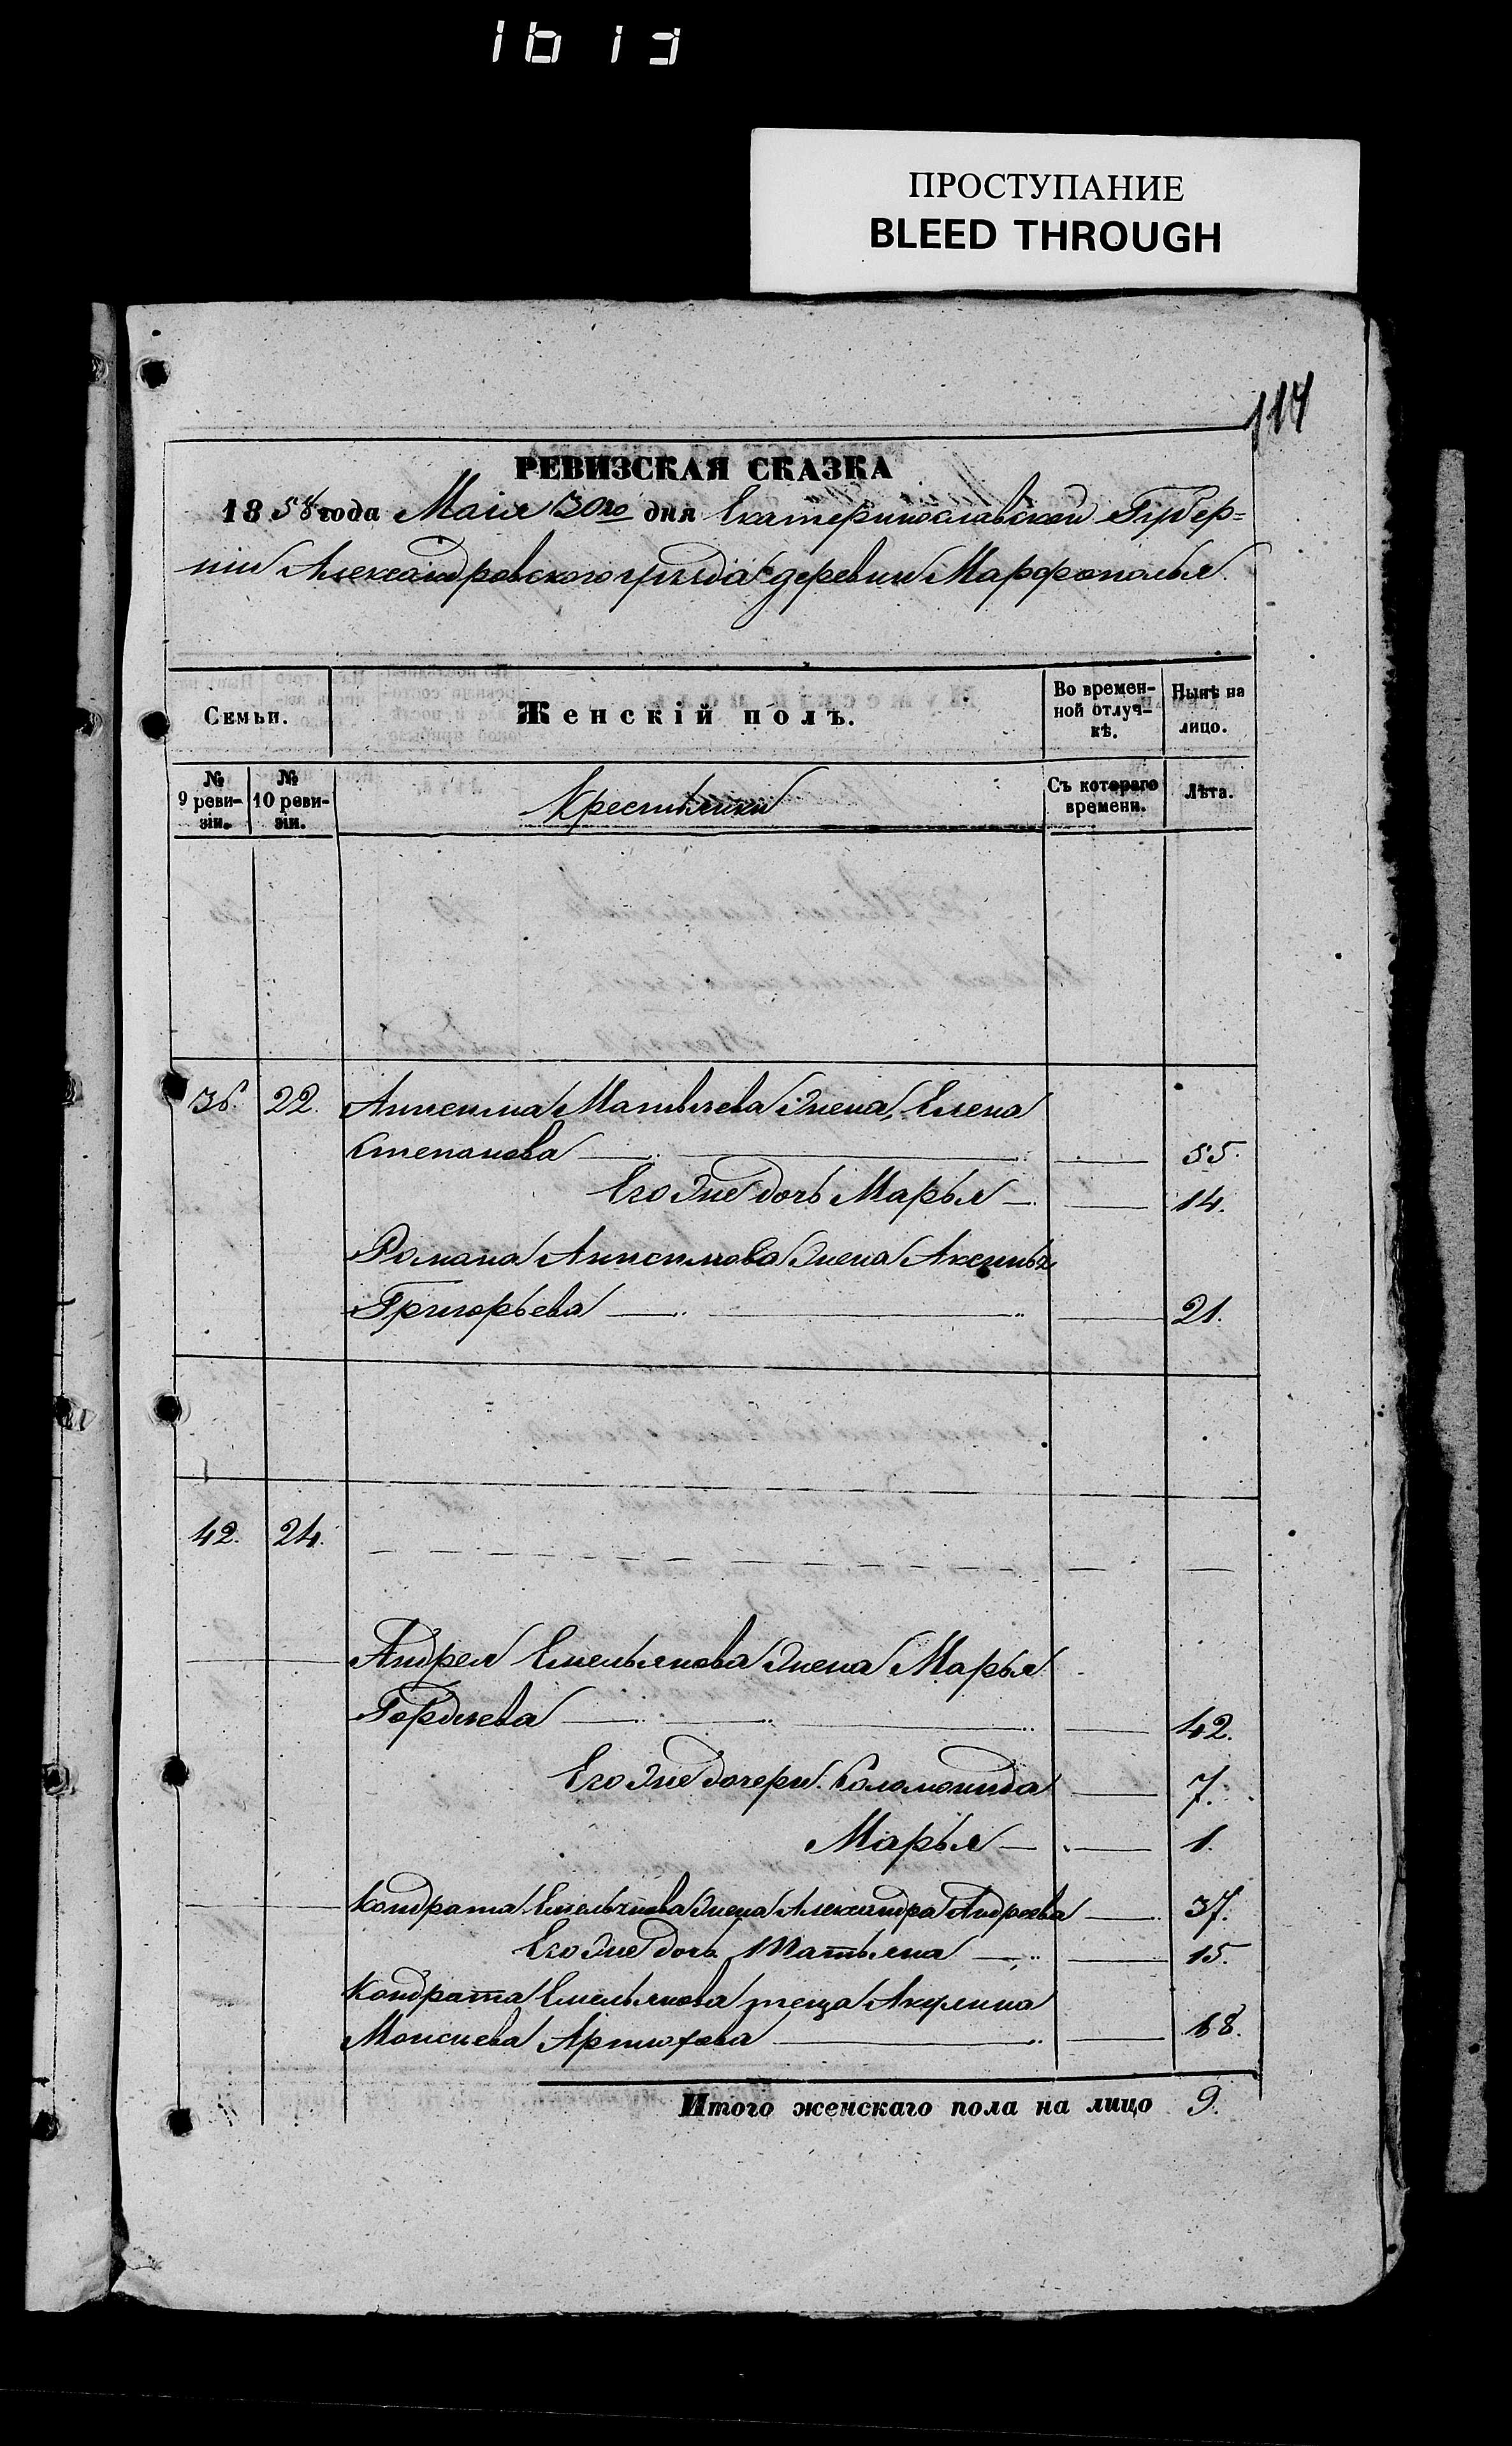 1613
ПРОСТУПАНИЕ
BLEED THROUGH
114
РЕВИЗСКАЯ СКАЗКА
1858 года Маія 30го дня Екатеринославской Губер=
ніи Александровского уѣзда деревни Марфополья
Семьи. Женскій полъ. Во времен- Нынѣ на
ной отлуч- лицо.
кѣ.
№ № Съ котораго Лѣта.
9 реви- 10 реви- Крестьянки времени.
зіи. зіи.
36. 22. Анисима Матвѣева жена Елена
Степанова 55.
Его же дочь Марья 14.
Романа Анисимова жена Аксинья
Григорьева 21.
42. 24.
Андрея Емельянова жена Марья
Гордѣева 42.
Его же дочери Соломонида 7.
Марья 1.
Кондрата Емельянова жена Александра Андреева 37.
Его же дочь Татьяна 15.
Кондрата Емельянова теща Акулина
Моисеева Артюхова 68.
Итого женскаго пола на лицо 9.